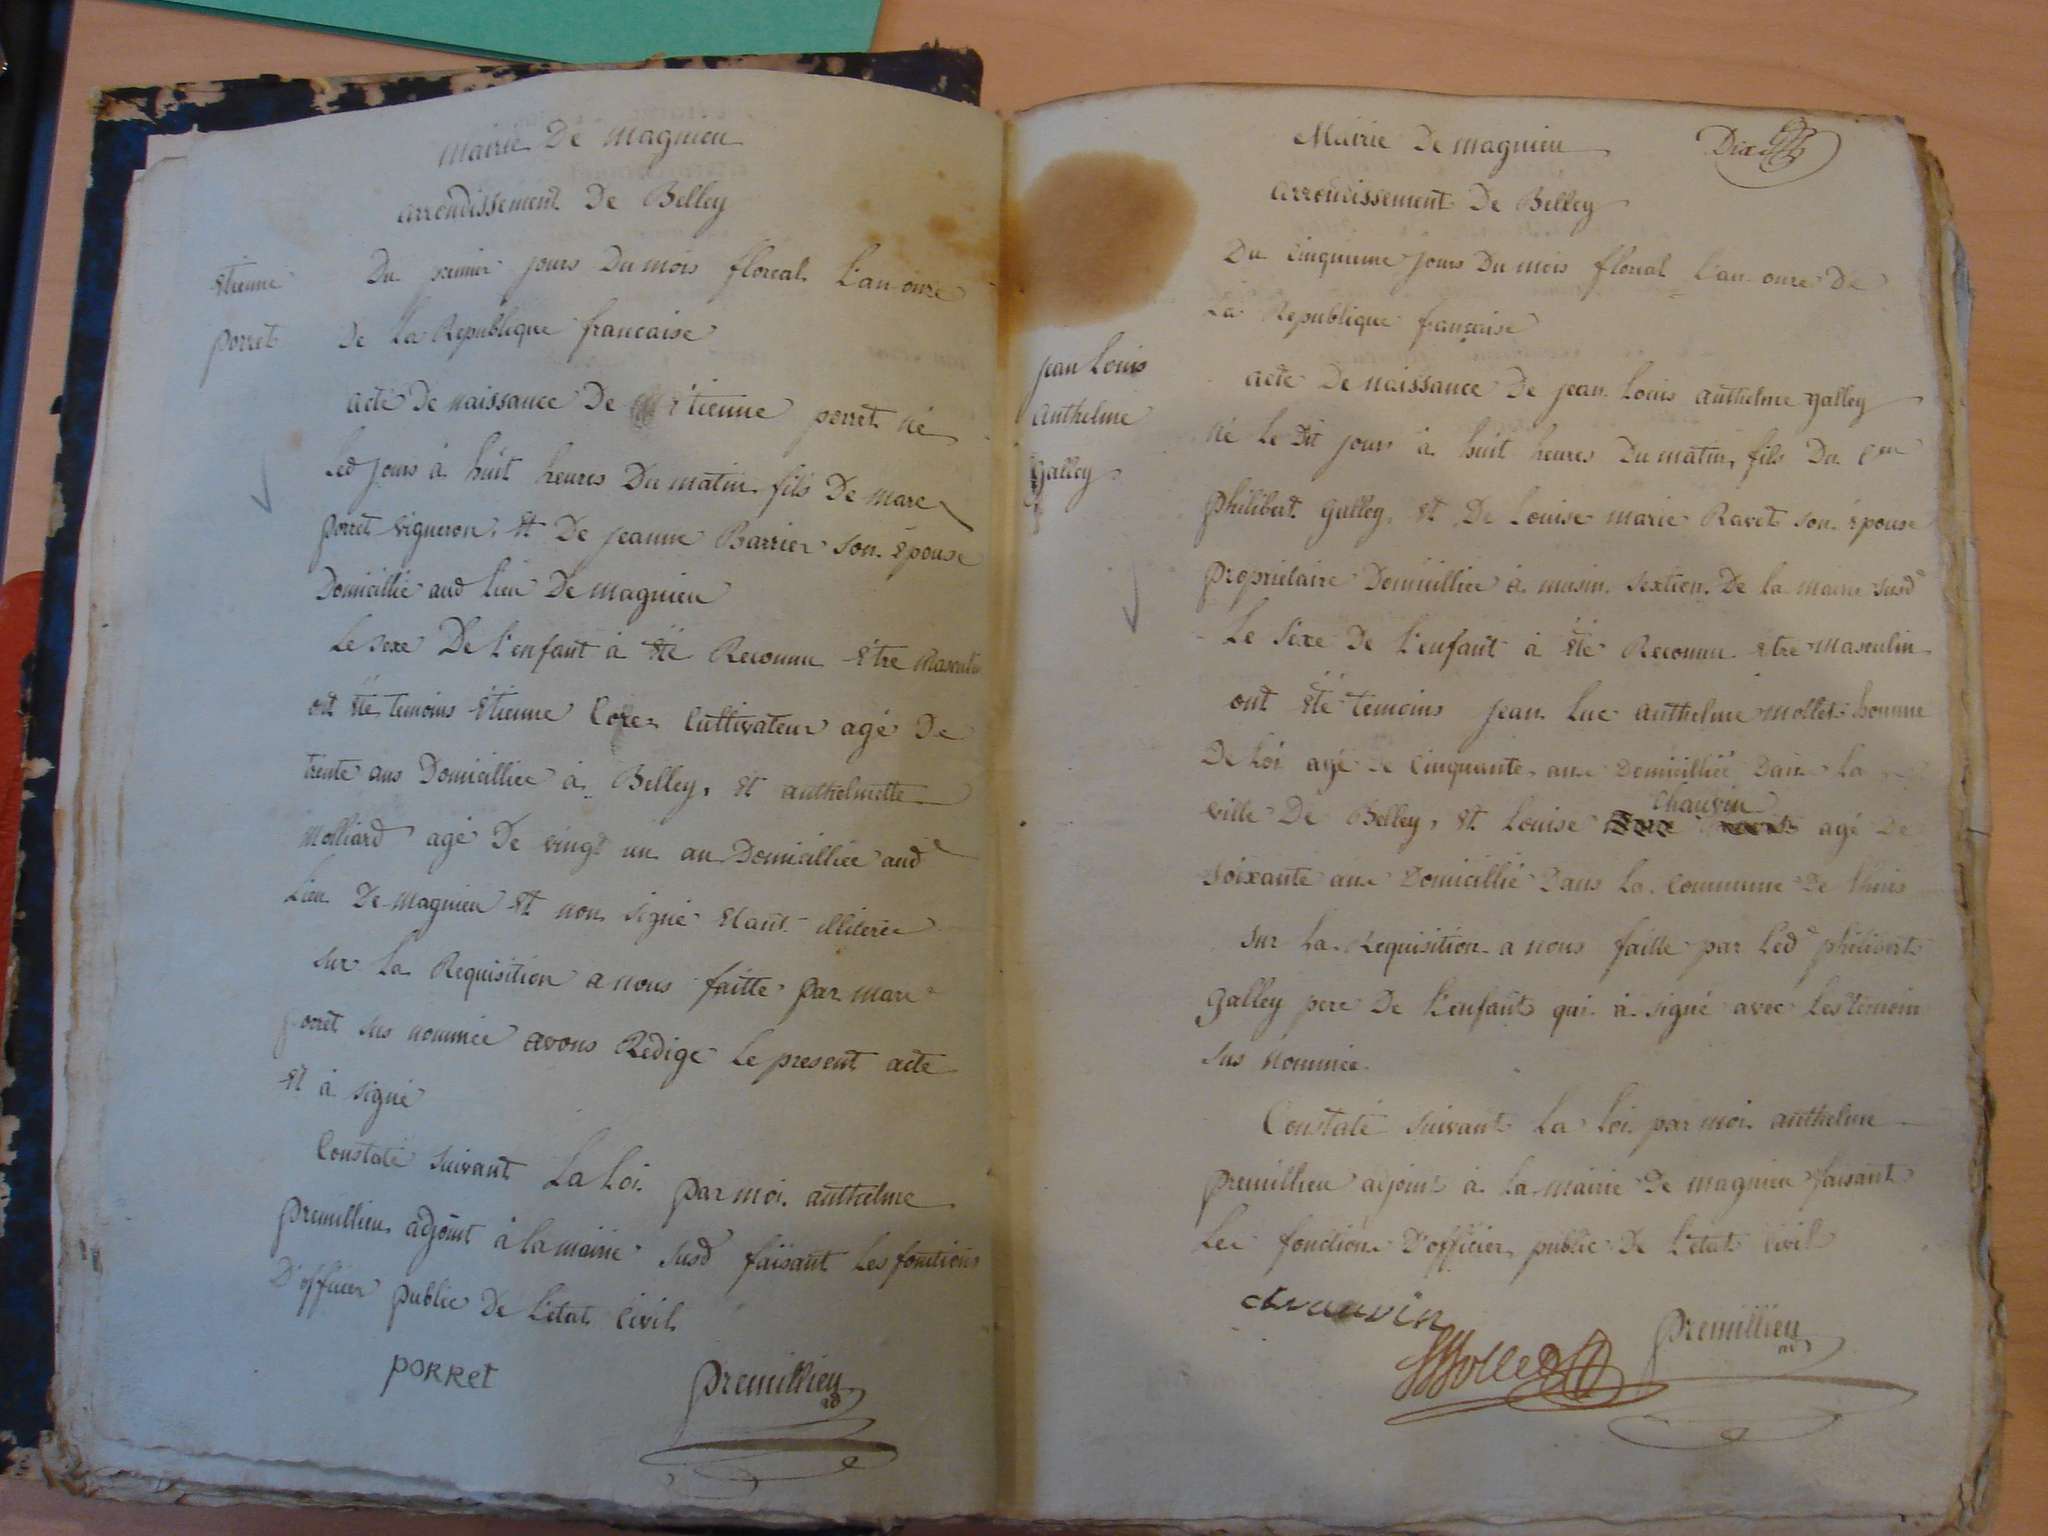 Mairie De magnieu
arrondissement De Belley
Du premier jours Du mois floreal L'an onze
De La Republique francaise
Etienne
porret
acte De naissance De Etienne porret né
Led jours à huit heures Du matin fils De marc
porret vigneron, Et De jeanne Barrier son Epouse
Domicillié aud lieu De magnieu
Le sexe De l'enfant à été Reconnu Etre Masculin
ont Eté temoins Etienne Cultivateur agé De
trente ans Domicilliée à Belley, Et anthelmette
Molliard agé De vingt un an Domicilliée aud
Lieu De magnieu Et non signé Etant illiterée
sur La Requisition a nous faitte par marc
porret sus nommée avons Redigé Le present acte
Et à signé
Constaté suivant La Loi par moi anthelme
premillieu adjoint à la mairie susd faisant Les fonctions
D'officier public De L'état Civil
PORRet
premillieu
ad
Mairie De magnieu
Dix
arrondissement De Belley
Du Cinquieme jours Du mois floreal L'an onze De
La Republique francaise
jean Louis
anthelme
galley
acte De naissance De jean Louis anthelme galley
né Le Dit jours à huit heures Du matin, fils Du Cen
philibert galley, Et De Louise marie Ravet son épouse
propriétaire Domicilliée à musin sextion De la mairie susd
Le sexe De L'enfant à Eté Reconnu Etre Masculin
ont Eté temoins jean Luc anthelme mollet homme
De Loi agé de Cinquante ans Domicilliée Dans La
chauvin
ville De Belley, Et Louise agé De
soixante ans Domicillié Dans La Commune De
sur La Requisition a nous faitte par Led philibert
galley pere De L'enfant qui à signé avec Les temoin
sus nommée
Constaté suivant La Loi par moi anthelme
premillieu adjoint à La mairie De magnieu faisant
Les fonctions D'officier public De L'état Civil
chauvin
Mollet
premillieu
ad